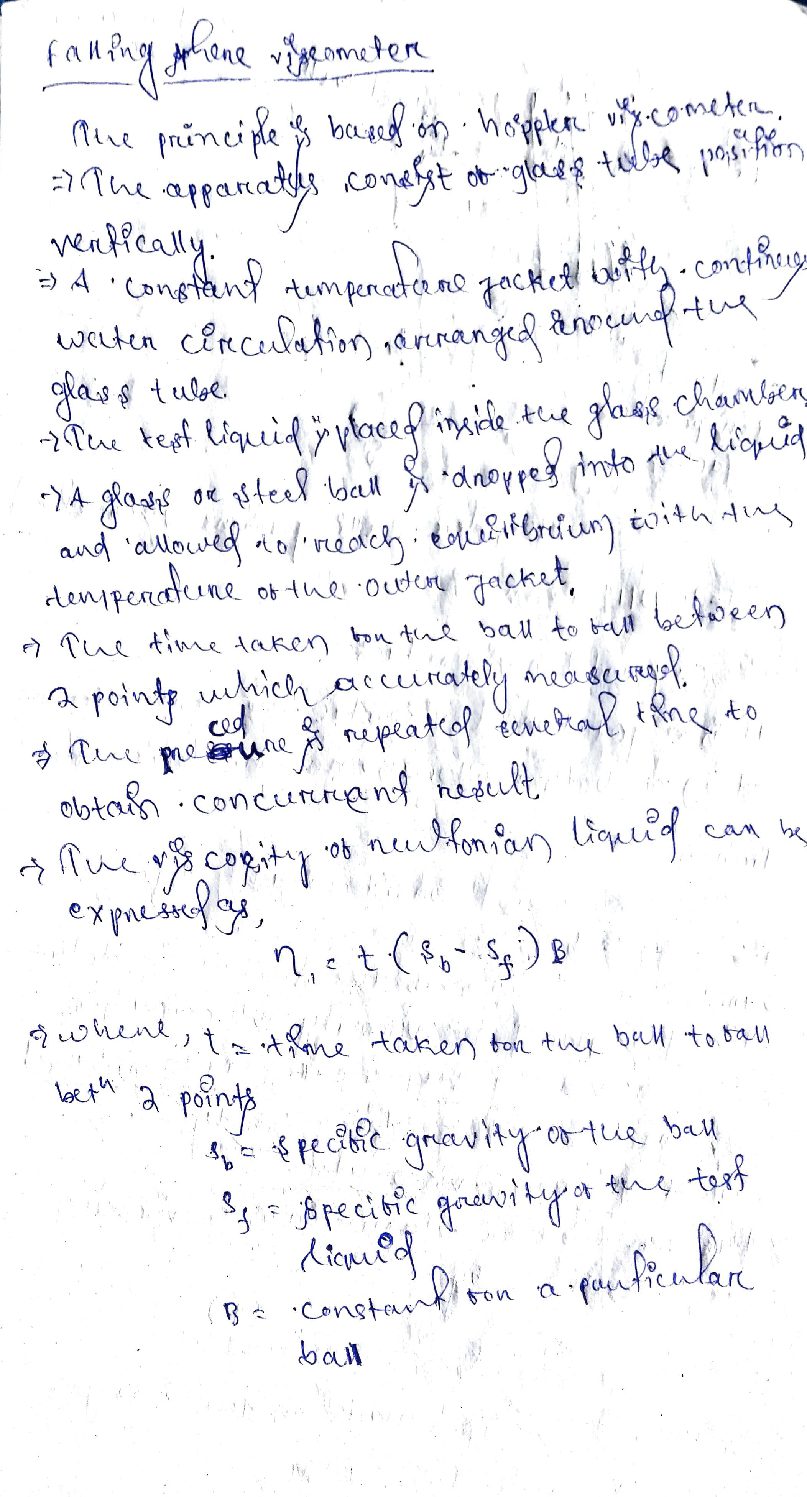 Falling sphere viscometer
The principle is based on hoppler viscometer.
⇒ The apparatus consist of glass tube position
vertically.
⇒ A constant temperature jacket with continues
water circulation arranged around the
glass tube.
→ The test liquid is placed inside the glass chamber
→ A glass or steel ball is dropped into the liquid
and allowed to reach equilibrium with the
temperature of the outer jacket.
→ The time taken for the ball to fall between
2 points which accurately measured.
⇒ The procedure is repeated several time to
obtain concurrent result
→ The viscosity of newtonian liquid can be
expressed as,
η₁ = t (S_b - S_f) B
→ where, t = time taken for the ball to fall
betⁿ 2 points
S_b = specific gravity of the ball
S_f = specific gravity of the test
liquid
B = constant for a particular
ball